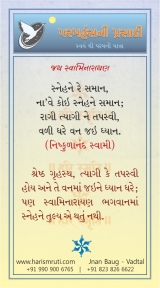 પરમહંસની પ્રસાદી
જય સ્વામિનારાયણ
સ્નેહને રે સમાન,
ના'વે કોઇ સ્નેહને સમાન;
રાગી ત્યાગી ને તપસ્વી,
વળી ધરે વન જઇ ધ્યાન.
(નિષ્કુળાનંદ સ્વામી)
શ્રેષ્ઠ ગૃહસ્થ, ત્યાગી કે તપસ્વી
હોય અને તે વનમાં જઇને ધ્યાન ધરે;
પણ સ્વામિનારાયણ ભગવાનમાં
સ્નેહને તુલ્ય એ થતું નથી.
www.harismruti.com
Jnan Baug - Vadtal
+91 990 900 6765 | +91 823 826 6622